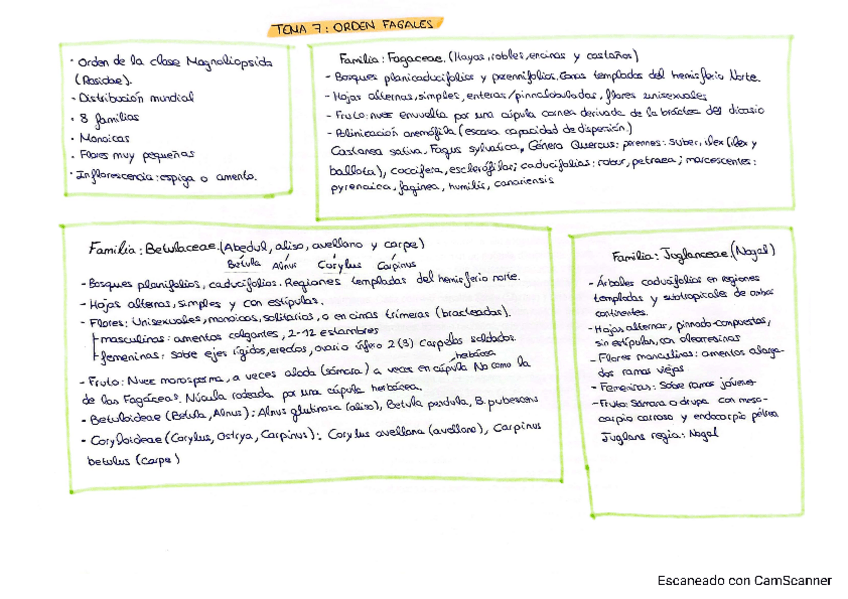 TEMA 7: ORDEN FAGALES
· Orden de la clase Magnoliopsida
(Rosidae).
- Distribución mundial
· 8 familias
· Monoicas
· Flores muy pequeñas
· Inflorescencia: espiga o amento.
Familia: Fagaceae. (Hayas, robles, encinas y castaños)
- Bosques planicaducifolios y perennifolios. Zonas templadas del hemisferio Norte.
- Hojas alternas, simples, enteras/pinnatolobuladas, flores unisexuales
- Fruto: nuez envuelta por una cúpula cornea derivada de la bráctea del dicasio
- Polinización anemófila (escasa capacidad de dispersión.)
Castanea sativa, Fagus sylvatica, Género Quercus: perennes: suber, ilex (ilex y
ballota), coccifera, esclerófilas; caducifolias: robur, petraea; marcescentes:
pyrenaica, faginea, humilis, canariensis
Familia: Betulaceae. (Abedul, aliso, avellano y carpe)
Betula Alnus Corylus Carpinus
- Bosques planifolios, caducifolios. Regiones templadas del hemisferio norte.
- Hojas alternas, simples y con estípulas.
- Flores: Unisexuales, monoicas, solitarias, o en cimas trímeras (bracteadas).
masculinas: amentos colgantes, 2-12 estambres
femeninas: sobre ejes rígidos, erectos, ovario ínfero 2 (3) carpelos soldados
herbácea
- Fruto: Nuez monosperma, a veces alada (sámara) a veces en cúpula No como la
de las Fagáceas. Núcula rodeada por una cúpula herbácea.
- Betuloideae (Betula, Alnus): Alnus glutinosa (aliso), Betula pendula, B. pubescens
- Coryloideae (Corylus, Ostrya, Carpinus): Corylus avellana (avellano), Carpinus
betulus (carpe)
Familia: Juglanceae. (Nogal)
- Árboles caducifolios en regiones
templadas y subtropicales de ambos
continentes.
- Hojas alternas, pinnado-compuestas,
sin estípulas, con oleorresinas
- Flores masculinas: amentos alarga-
dos ramas viejas
- Femeninas: Sobre ramas jóvenes
- Fruto: Sámara o drupa con meso-
carpio carnoso y endocarpio pétreo
Juglans regia: Nogal
Escaneado con CamScanner